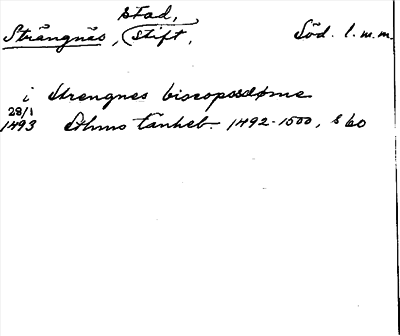 stad,
Strängnäs, (Stift,
Söd. l. m. m.
i Strengnes biscopsdøme
28/1
1493 Sthms tänkeb. 1492-1500, s 60